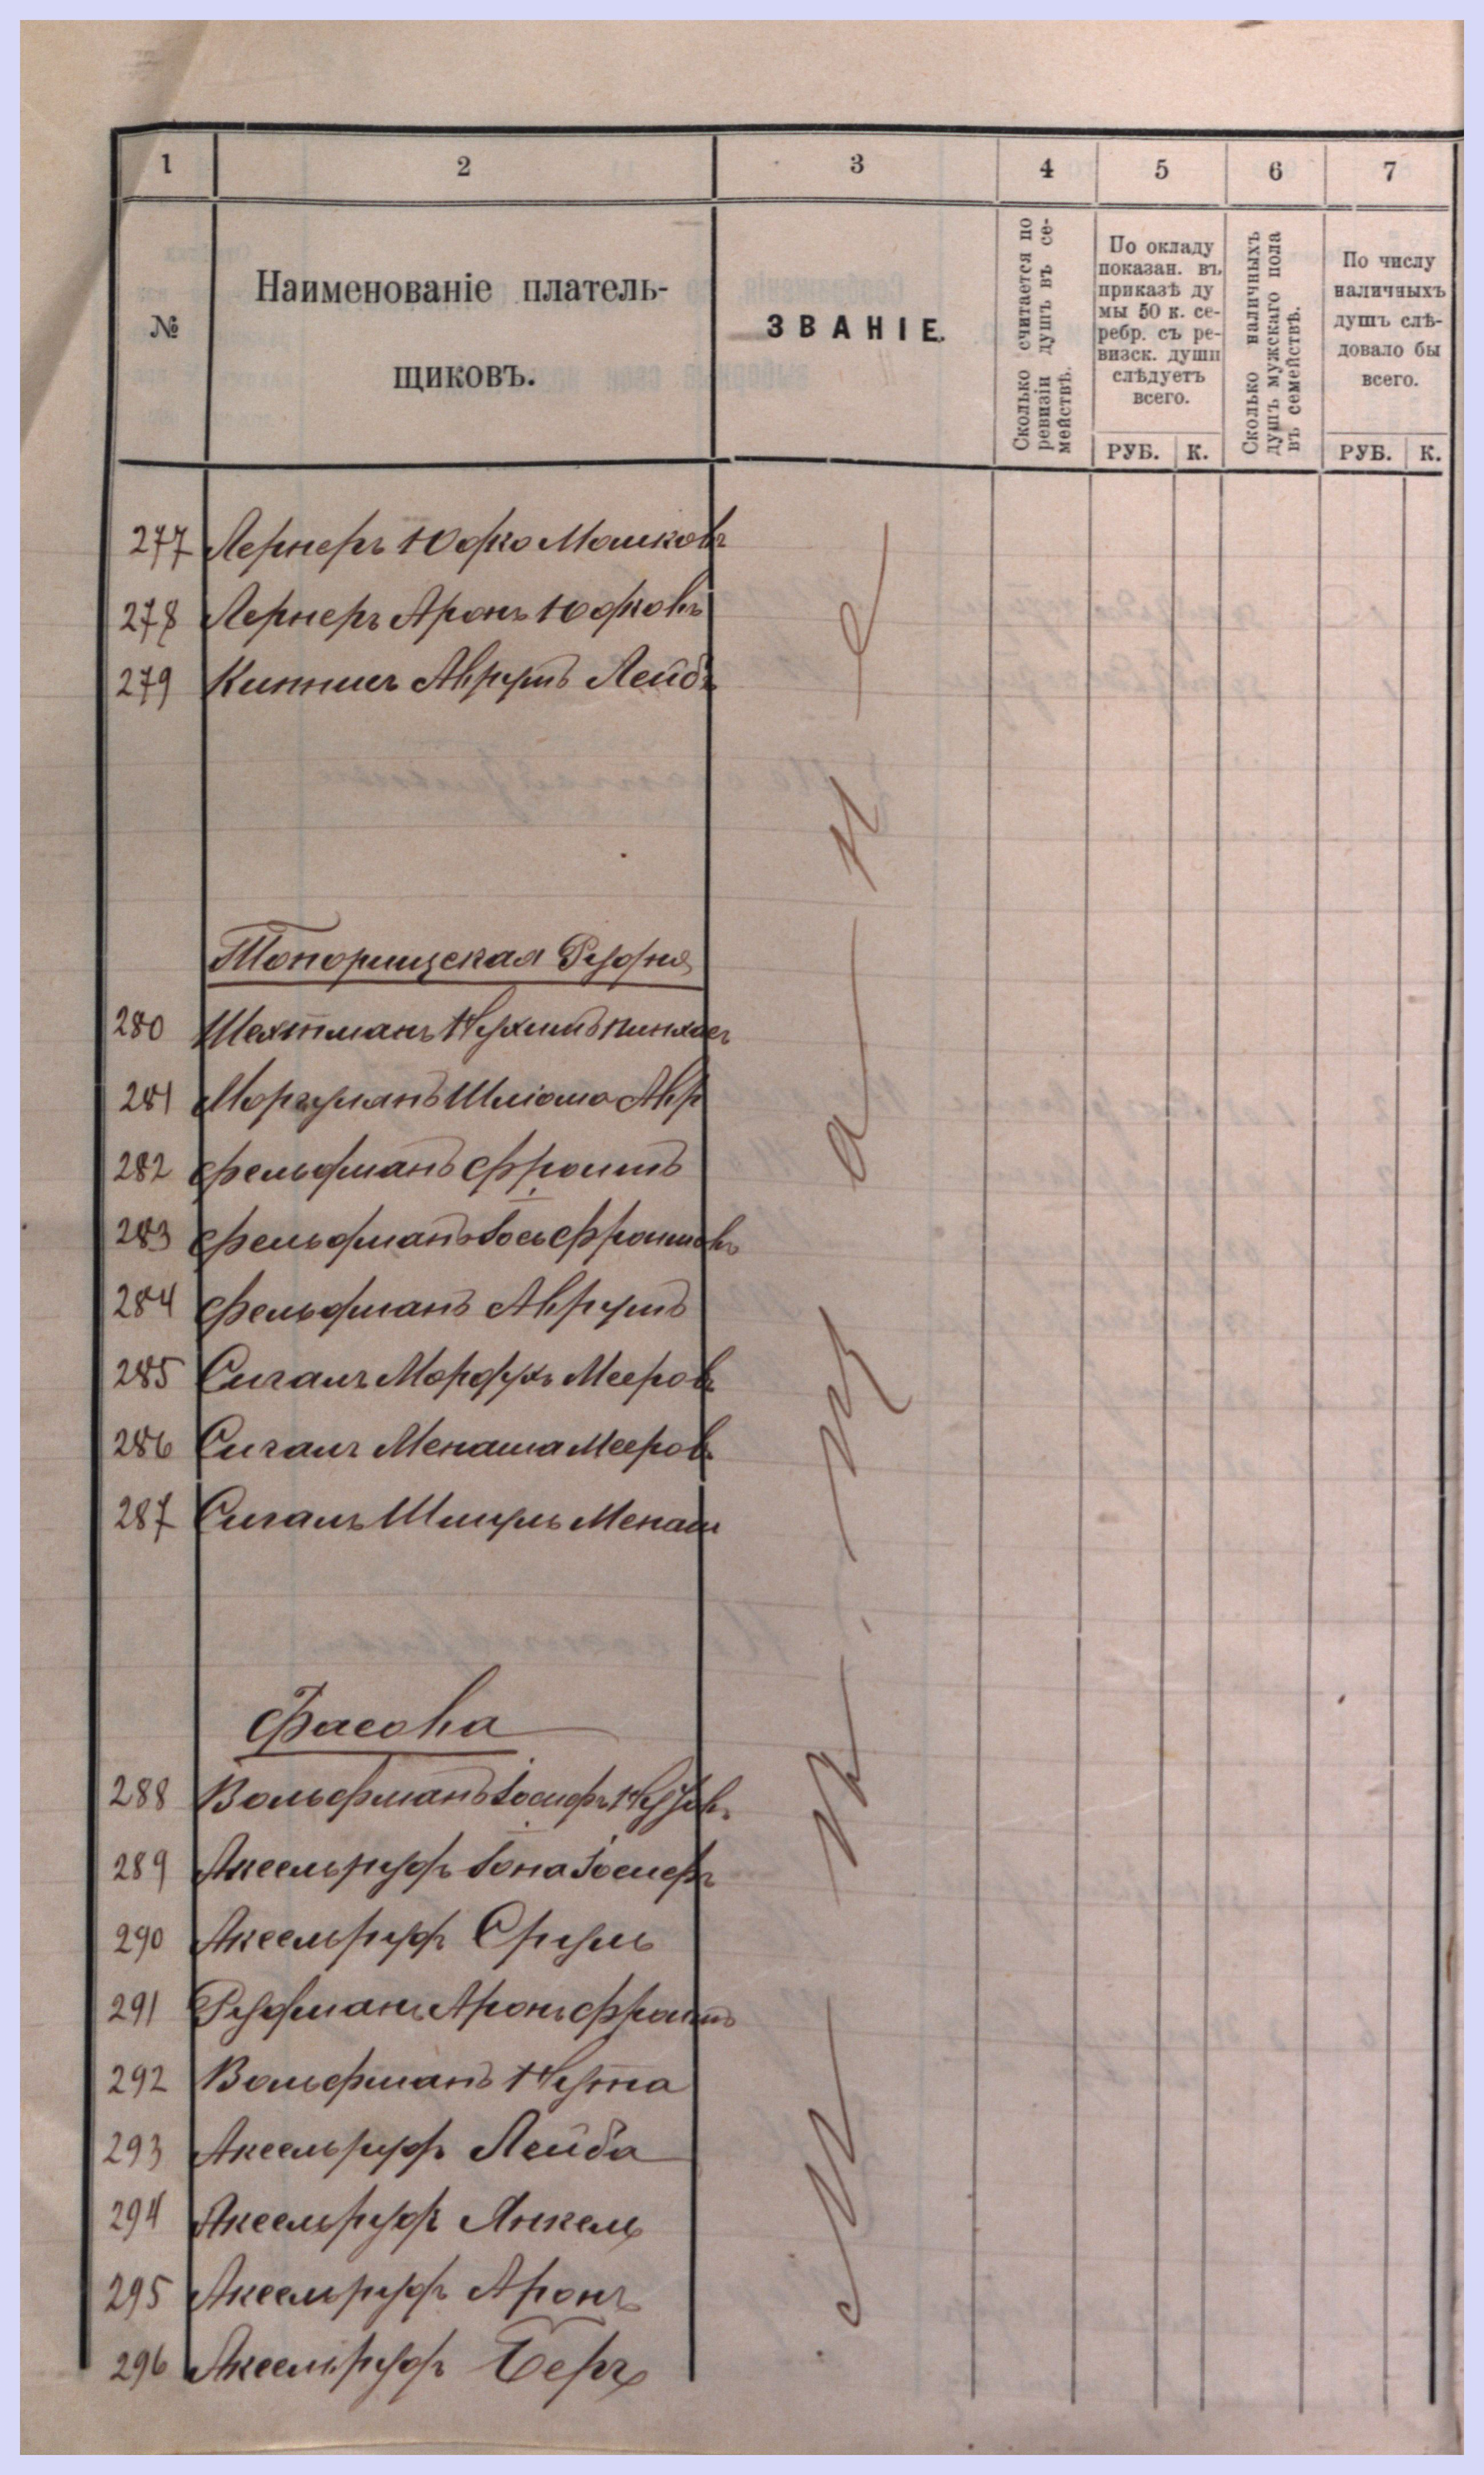 1 2 3 4 5 6 7
№
Наименованіе платель-
щиковъ.
ЗВАНІЕ.
Сколько считается по
ревизіи душъ въ се-
мействѣ.
По окладу
показан. въ
приказѣ ду
мы 50 к. се-
ребр. съ ре-
визск. души
слѣдуетъ
всего.
РУБ. К.
Сколько наличныхъ
душъ мужскаго пола
въ семействѣ.
По числу
наличныхъ
душъ слѣ-
довало бы
всего.
РУБ. К.
277 Лернеръ Юдко Мошковъ
278 Лернеръ Аронъ Юдковъ
279 Кипнисъ Аврумъ Лейбъ
Топорищская Рудня
280 Шехтманъ Нухимъ Пинхас
281 Моргуланъ Шліома Авр
282 Фельдманъ Фроимъ
283 Фельдманъ Іось Фроимовъ
284 Фельдманъ Аврумъ
285 Сигалъ Мордухъ Мееровъ
286 Сигалъ Менаша Мееровъ
287 Сигалъ Шмуль Менаш
Фасова
288 Вольфманъ Іосифъ
289 Аксельрудъ Іона Іосифъ
290 Аксельрудъ Сруль
291 Рудманъ Аронъ Фроимъ
292 Вольфманъ Нута
293 Аксельрудъ Лейба
294 Аксельрудъ Янкель
295 Аксельрудъ Аронъ
296 Аксельрудъ Беръ
Мѣщане